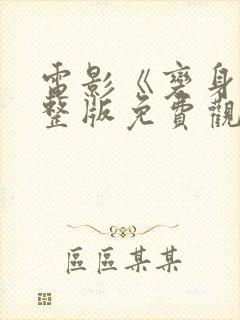 電影《變身
整版免費觀
區區某某